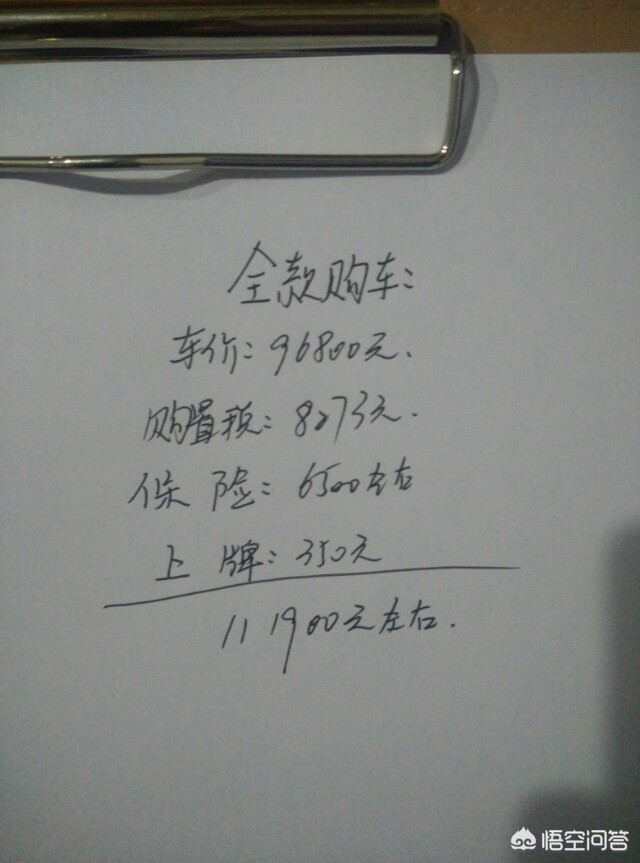 全款购车:
车价: 96800元.
购置税: 8273元.
保险: 6500左右
上牌: 350元
111900元左右.
悟空问答